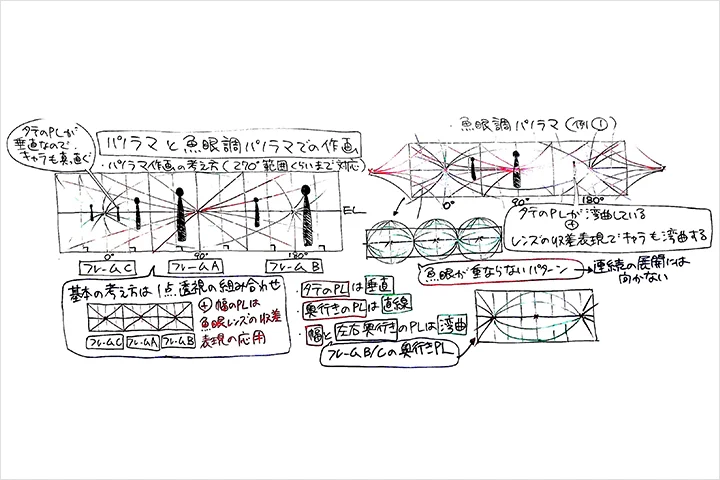 タテのPLが
垂直なので
キャラも真っ直ぐ
パノラマと魚眼調パノラマでの作画
・パノラマ作画の考え方(270°範囲くらいまで対応)
EL
0°
90°
180°
フレームC
フレームA
フレームB
基本の考え方は1点透視の組み合わせ
⊕幅のPLは
魚眼レンズの収差
表現の応用
フレームC
フレームA
フレームB
・魚眼調パノラマ(例①)
0°
90°
180°
タテのPLが湾曲している
⊕
レンズの収差表現でキャラも湾曲する
魚眼が重ならないパターン→連続の展開には
向かない
・タテのPLは垂直
・奥行きのPLは直線
・幅と左右奥行きのPLは湾曲
フレームB/Cの奥行きPL